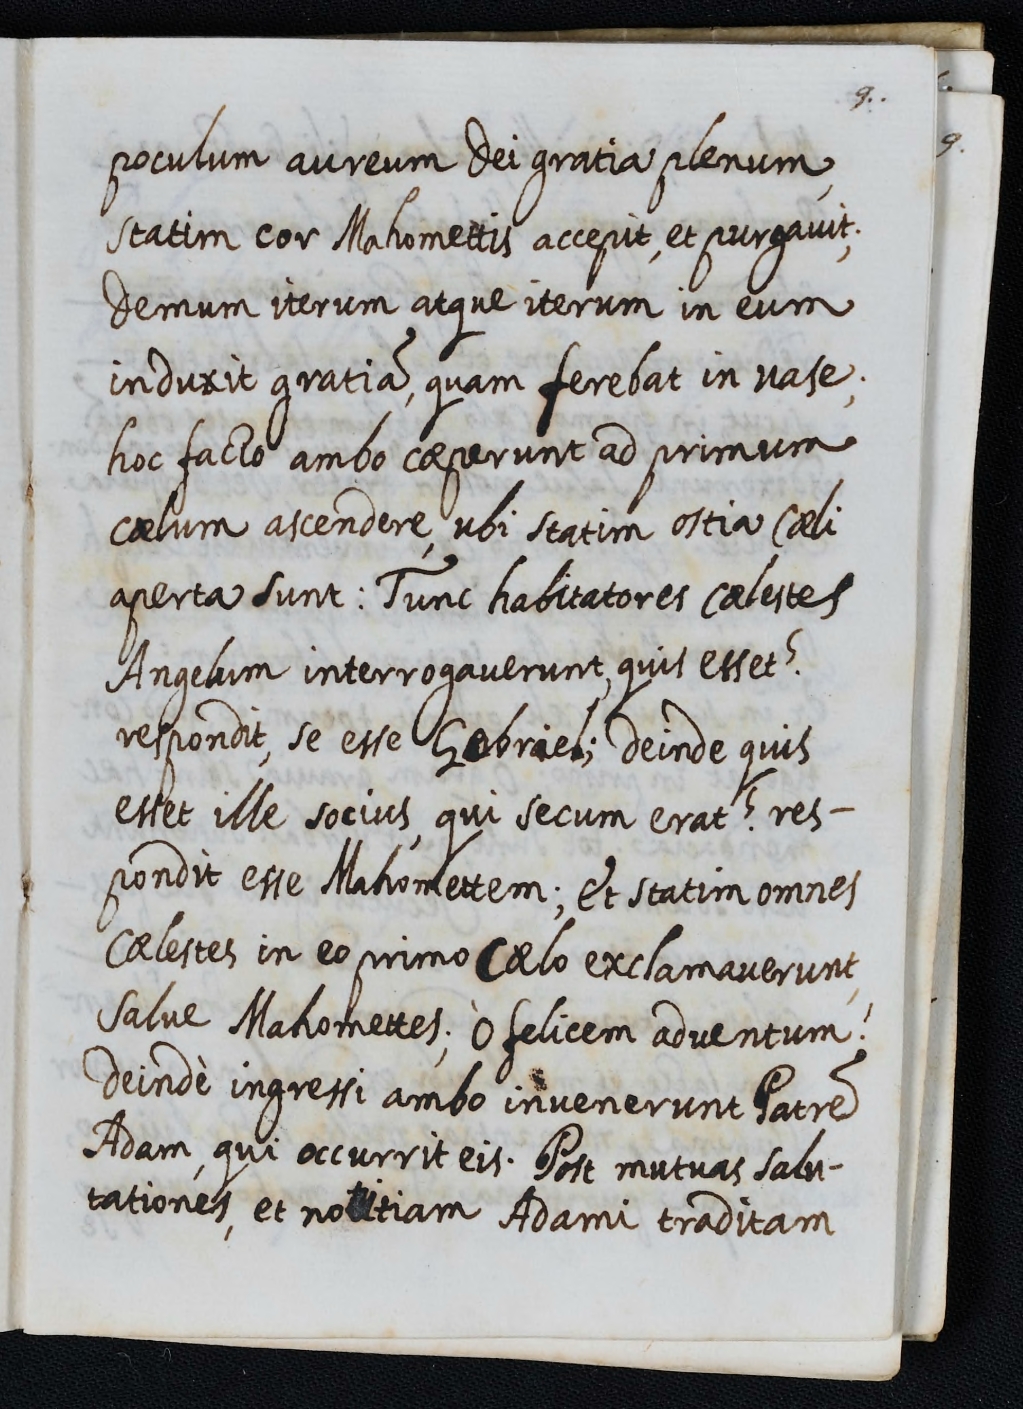 9..
9.
poculum aureum Dei gratia plenum,
statim cor Mahomettis accepit, et purgavit;
demum iterum atque iterum in eum
induxit gratiã, quam ferebat in vase;
hoc facto ambo cæperunt ad primum
cælum ascendere, ubi statim ostia Cæli
aperta sunt: Tunc habitatores Cælestes
Angelum interrogaverunt, quis esset?
respondit, se esse Gabriel; deinde quis
esset ille socius, qui secum erat? res-
pondit esse Mahomettem; et statim omnes
Cælestes in eo primo Cælo exclamaverunt,
Salve Mahomettes; ò felicem adventum!
deindè ingressi ambo invenerunt Patrẽ
Adam, qui occurrit eis. Post mutuas salu-
tationes, et notitiam Adami traditam